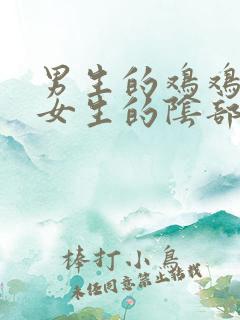 男生的鸡鸡
女生的陰部
棒打小鳥
未经同意禁止转载